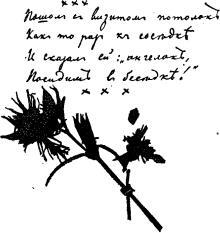 × × ×
Пошолъ съ визитомъ потолокъ
Какъ то разъ къ сосѣдкѣ
И сказалъ ей: „ангелокъ,
Посидимъ въ бесѣдкѣ!"
× × ×